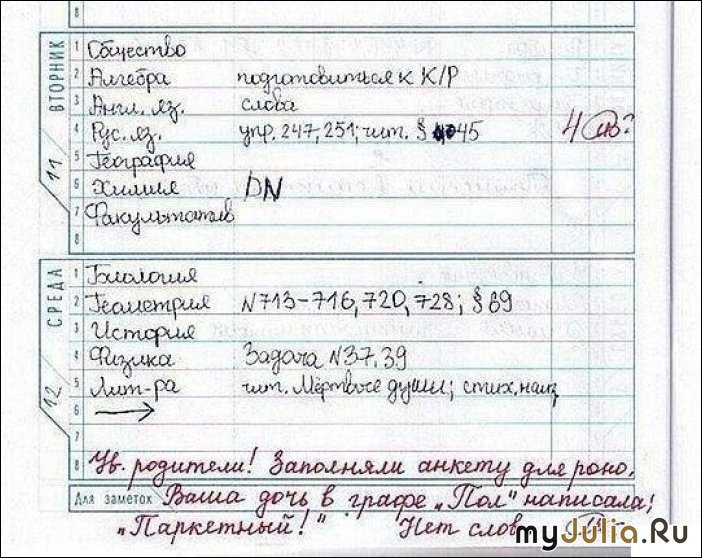 8
ВТОРНИК 11
1 Общество
2 Алгебра подготовиться к К/Р
3 Англ. яз. слова
4 Рус. яз. упр. 247, 251; чит. § 45 4
5 География
6 Химия
7 Факультатив
8
СРЕДА 12
1 Биология
2 Геометрия N 713-716, 720, 728; § 69
3 История
4 Физика Задача N 37, 39
5 Лит-ра чит. Мёртвые души; стих. наиз.
6 →
7
8 Ув. родители! Заполняли анкету для роно.
Для заметок Ваша дочь в графе „Пол" написала:
„Паркетный!" Нет слов
myJulia.Ru